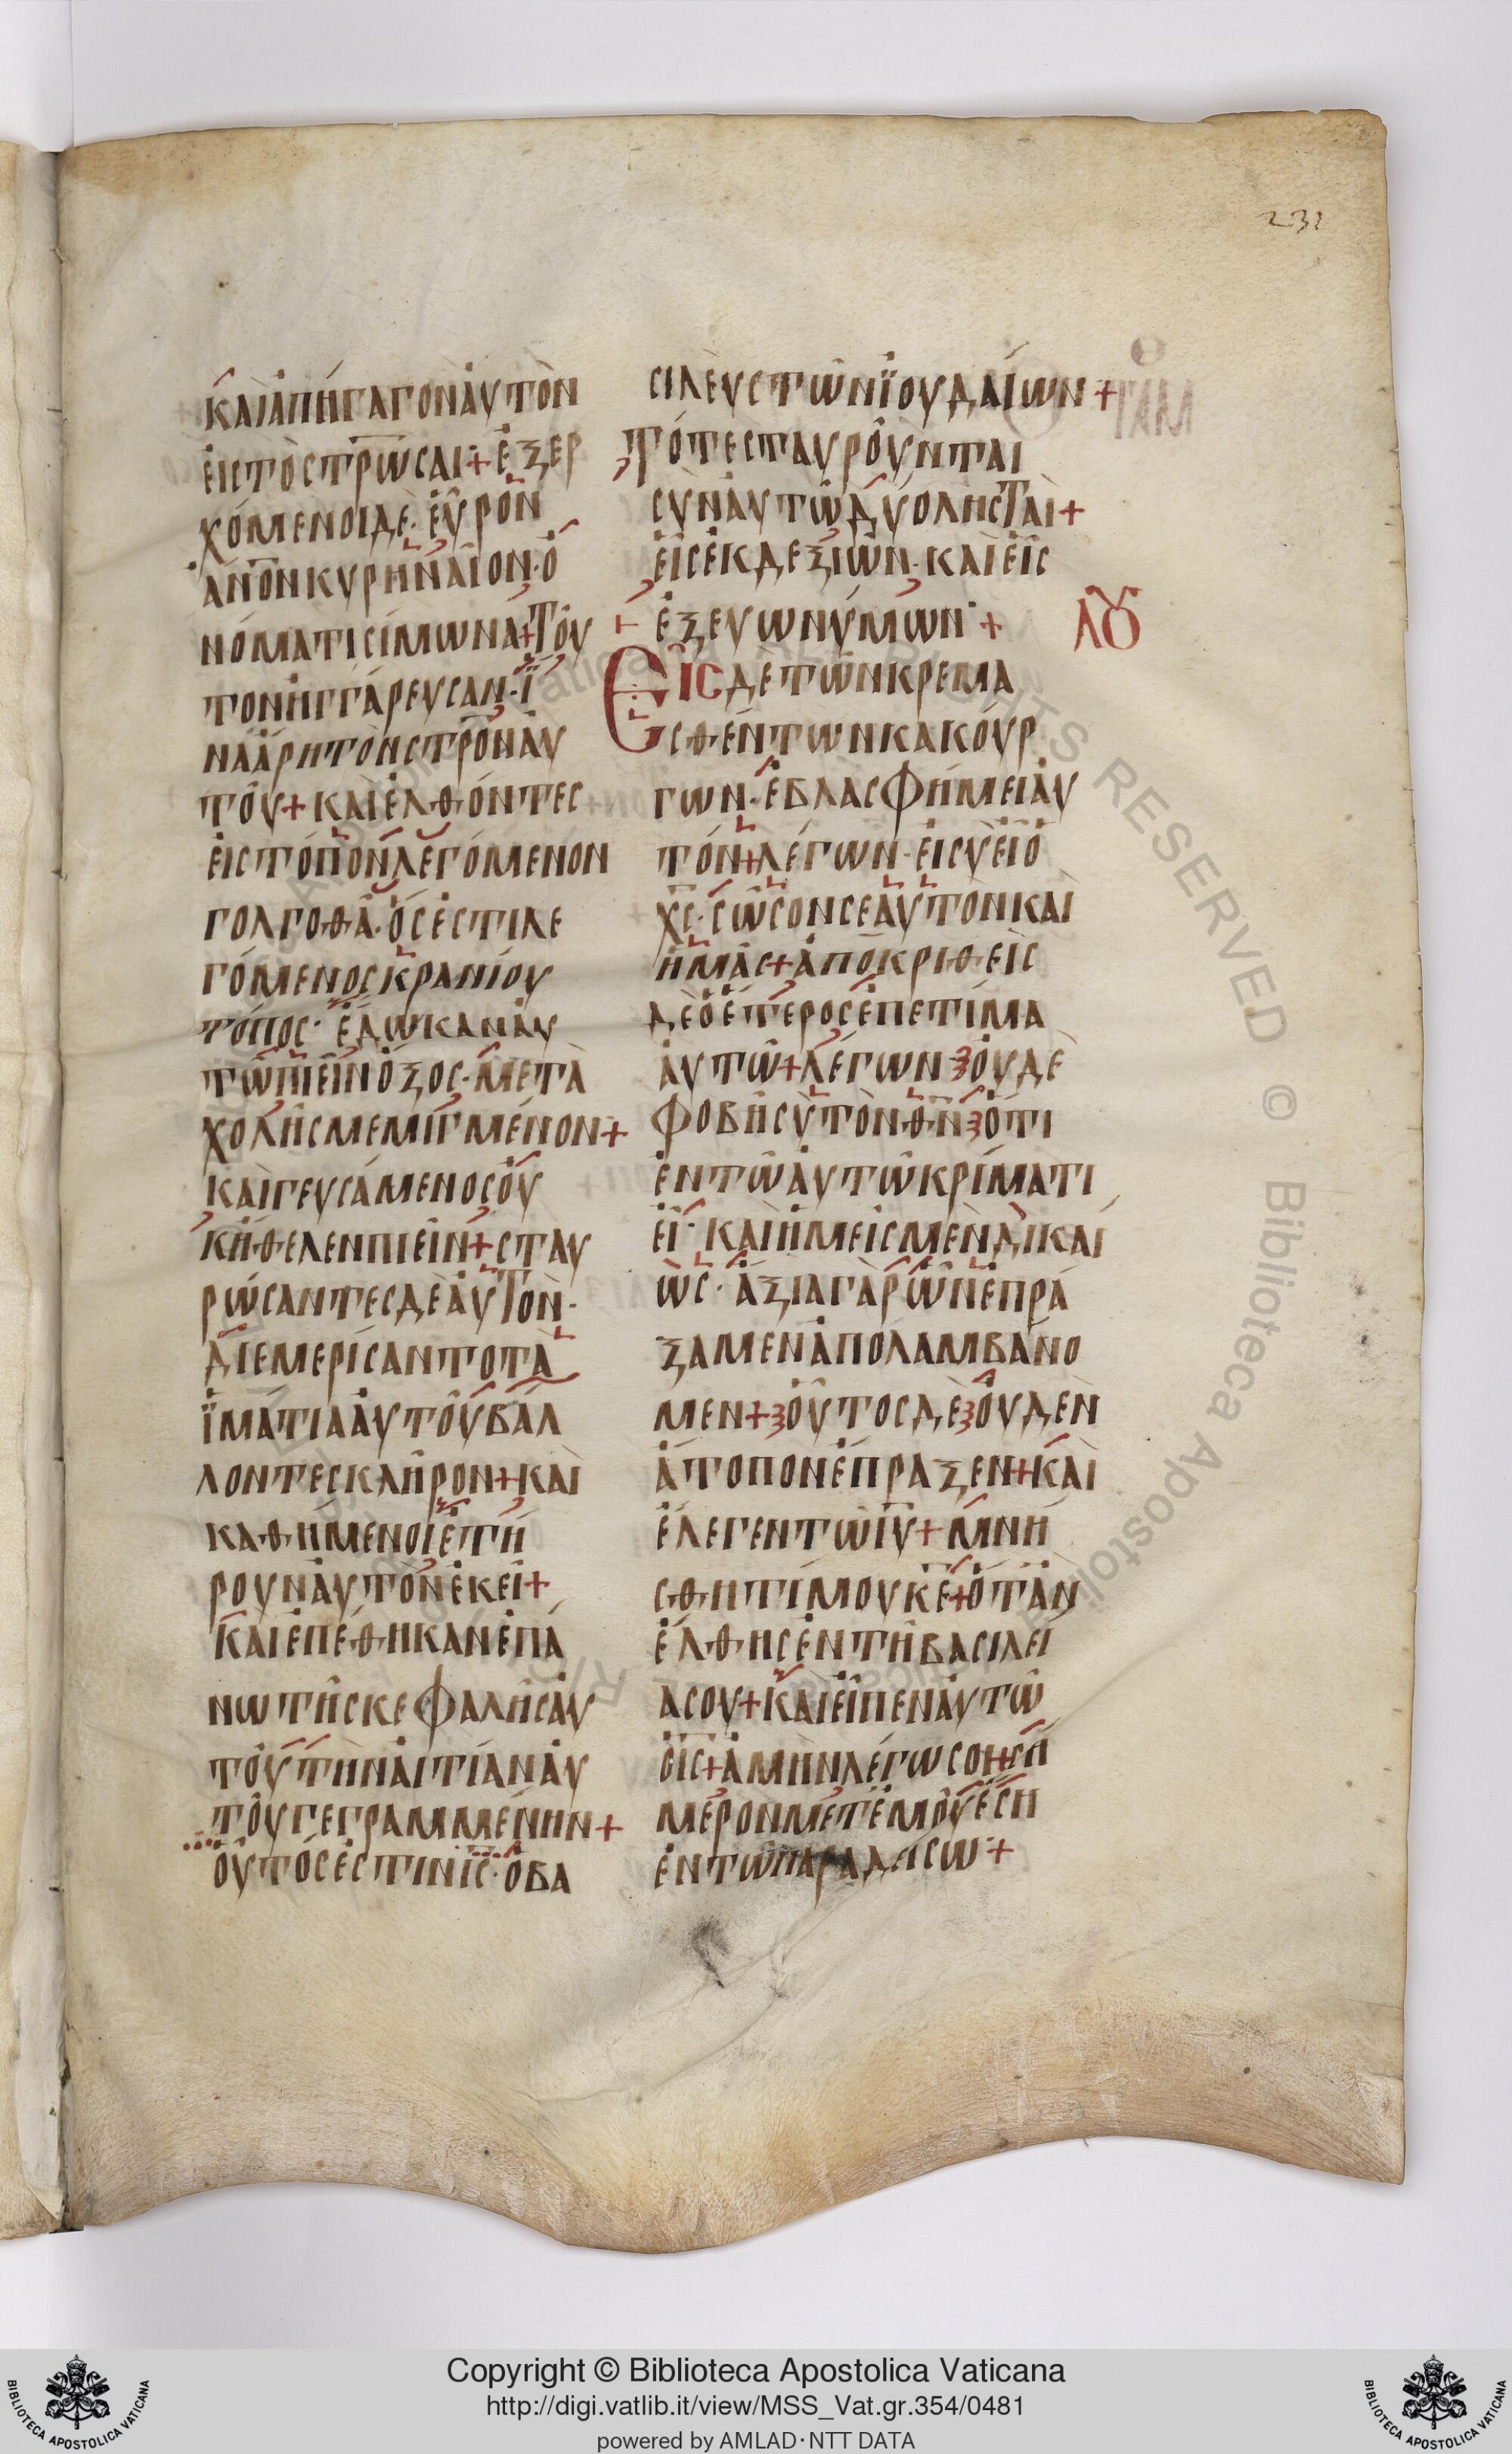 231
ΚΑῚἈΠΉΓΑΓΟΝἈΥΤῸΝ
ἘΙΣΤῸΣΤΡΩ̅ΣΑΙ+ἘΞΕΡ
ΧΌΜΕΝΟΙΔΕ·ἙΥ͂ΡΟΝ
ΑΝΟΝΚΥΡΗΝΑΙ͂ΟΝ·Ὀ
ΝΌΜΑΤΙΣΊΜΩΝΑ+ΤΟΥ͂
ΤΟΝἨΓΓΆΡΕΥΣΑΝ·Ἵ
ΝΑἌΡΗΤΟΝΣΤΡ̅Ο̅Ν̅ἈΥ
ΤΟΥ͂+ΚΑῚἘΛΘΌΝΤΕΣ
ἘΙΣΤΌΠΟΝΛΕΓΌΜΕΝΟΝ
ΓΟΛΓΟΘΑ͂·ὍΣἘΣΤΙΛΕ
ΓΌΜΕΝΟΣΚΡΑΝΊΟΥ
ΤΌΠΟΣ·ἜΔΩΚΑΝἈΥ
ΤΩ͂ΠΙΕΙ͂ΝὌΞΟΣ·ΜΕΤᾺ
ΧΟΛΗ͂ΣΜΕΜΙΓΜΈΝΟΝ+
ΚΑῚΓΕΥΣΆΜΕΝΟΣὈΥ
ΚΉΘΕΛΕΝΠΙΕΙ͂Ν+ΣΤΑΥ
ΡΏΣΑΝΤΕΣΔΕἈΥΤῸΝ·
ΔΙΕΜΕΡΊΣΑΝΤΟΤᾺ
ἹΜΆΤΙΑἈΥΤΟΥ͂ΒΑΛ
ΛΟΝΤΕΣΚΛΗ͂ΡΟΝ+ΚΑῚ
ΚΑΘΉΜΕΝΟΙἘΤΉ
ΡΟΥΝἈΥΤΟΝἘΚΕΙ͂+
ΚΑῚἘΠΈΘΗΚΑΝἘΠΆ
ΝΩΤΗ͂ΣΚΕΦΑΛΗ͂ΣἈΥ
ΤΟΥ͂ΤῊΝἈΙΤΊΑΝἈΥ
ΤΟΥ͂ΓΕΓΡΑΜΜΈΝΗΝ+
ὉΥ͂ΤΌΣἘΣΤΙΝΙ̅Σ̅·ὉΒΑ
ΣΙΛΕῪΣΤΩ͂ΝἸΟΥΔΑΊΩΝ+
ΤΌΤΕΣΤΑΥΡΟΥ͂ΝΤΑΙ
ΣῪΝἈΥΤΩ͂ΔΎΟΛΗΣΤΑῚ+
ἙΙ͂ΣἘΚΔΕΞΙΩ͂Ν·ΚΑῚἙΙ͂Σ
ἘΞΕΥΩΝΎΜΩΝ+
ΛΟΥ
ἙΙ͂ΣΔῈΤΩ͂ΝΚΡΕΜΑ
ΣΘΈΝΤΩΝΚΑΚΟΎΡ
ΓΩΝ·ἘΒΛΑΣΦΉΜΕΙἈΥ
ΤΌΝ+ΛΈΓΩΝ·ἘΙΣῪΕΙ͂Ὁ
Χ̅Σ̅·ΣΩ͂ΣΟΝΣΕἈΥΤΟΝΚΑῚ
ἩΜΑ͂Σ+ἈΠΟΚΡΙΘΕῚΣ
ΔῈὉἝΤΕΡΟΣἘΠΕΤΊΜΑ
ἈΥΤΩ͂+ΛΈΓΩΝ·ὈΥΔῈ
ΦΟΒΗ͂ΣῪΤῸΝΘ̅Ν̅·ὍΤΙ
ἘΝΤΩ͂ἈΥΤΩ͂ΚΡΊΜΑΤΙ
ἘΙ͂·ΚΑῚἩΜΕΙ͂ΣΜῈΝΔΙΚΑΊ
ΩΣ·ἌΞΙΑΓᾺΡὯΝἘΠΡΆ
ΞΑΜΕΝἈΠΟΛΑΜΒΆΝΟ
ΜΕΝ+ὉΥ͂ΤΟΣΔῈὈΥΔῈΝ
ἌΤΟΠΟΝἘΠΡΑΞΕΝ+ΚΑῚ
ἘΛΕΓΕΝΤΩ͂Ι̅Υ̅+ΜΝΉ
ΣΘΗΤΊΜΟΥΚ̅Ε̅+ὍΤΑΝ
ἜΛΘΗΣἘΝΤΗ͂ΒΑΣΙΛΕΊ
ΑΣΟΥ+ΚΑῚἘΙ͂ΠΕΝἈΥΤΩ͂
ὉΙ̅Σ̅+ἈΜῊΝΛΈΓΩΣΟΙ+ΣΉ
ΜΕΡΟΝΜΕΤἘΜΟΥ͂ἜΣΗ
ἘΝΤΩ͂ΠΑΡΑΔΕΊΣΩ+
Copyright © Biblioteca Apostolica Vaticana
http://digi.vatlib.it/view/MSS_Vat.gr.354/0481
powered by AMLAD·NTT DATA
BIBLIOTECA APOSTOLICA VATICANA
BIBLIOTECA APOSTOLICA VATICANA